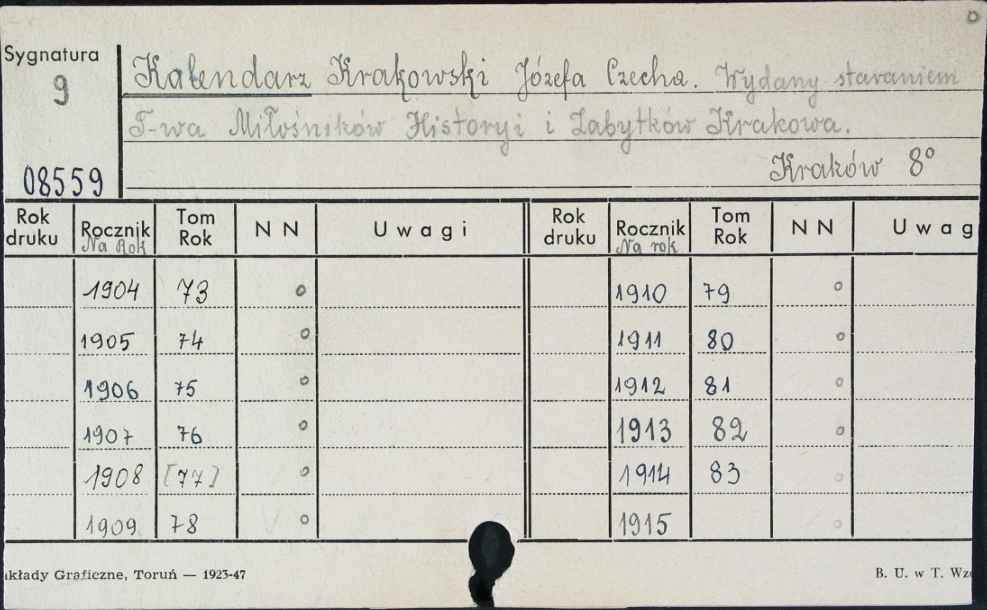 Sygnatura
9
08559
Kalendarz Krakowski Józefa Czecha. Wydany staraniem
T-wa Miłośników Historyi i Zabytków Krakowa.
Kraków 8°
Rok druku Rocznik Na Rok Tom Rok N N Uwagi Rok druku Rocznik Na rok Tom Rok N N Uwag
1904 73 o 1910 79 o
1905 74 o 1911 80 o
1906 75 o 1912 81 o
1907 76 o 1913 82 o
1908 [77] o 1914 83 o
1909 78 o 1915 o
kłady Graficzne, Toruń — 1923-47
B. U. w T. Wz